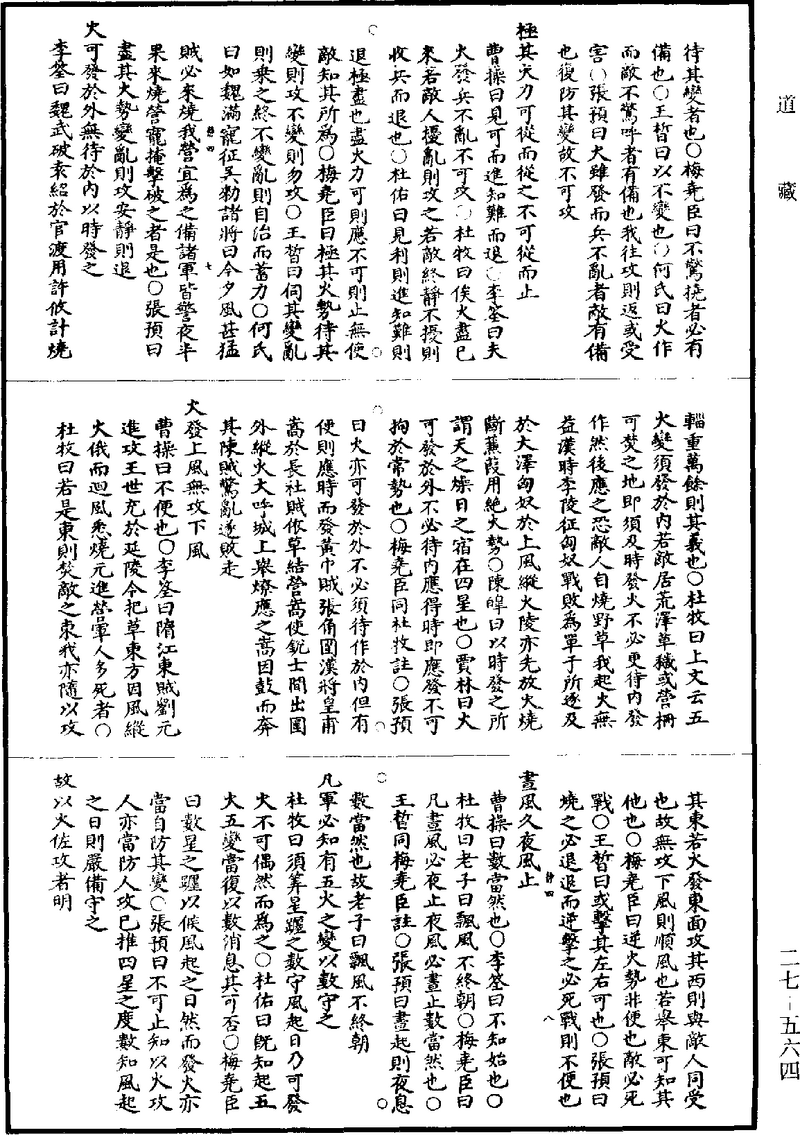 道藏
待其變者也○梅堯臣曰不驚撓者必有
備也○王晳曰以不變也○何氏曰火作
而敵不驚呼者有備也我往攻則返或受
害○張預曰火雖發而兵不亂者敵有備
也復防其變故不可攻
極其火力可從而從之不可從而止
曹操曰見可而進知難而退○李筌曰夫
火發兵不亂不可攻○杜牧曰俟火盡已
來若敵人擾亂則攻之若敵終靜不擾則
收兵而退也○杜佑曰見利則進知難則
退極盡也盡火力可則應不可則止無使
敵知其所為○梅堯臣曰極其火勢待其
變則攻不變則勿攻○王晳曰伺其變亂
則乘之終不變亂則自治而蓄力○何氏
曰如魏滿寵征吳勑諸將曰今夕風甚猛
賊必來燒我營宜為之備諸軍皆警夜半
果來燒營寵掩擊破之者是也○張預曰
盡其火勢變亂則攻安靜則退
火可發於外無待於內以時發之
李筌曰魏武破袁紹於官渡用許攸計燒
輜重萬餘則其義也○杜牧曰上文云五
火變須發於內若敵居荒澤草穢或營柵
可焚之地即須及時發火不必更待內發
作然後應之恐敵人自燒野草我起火無
益漢時李陵征匈奴戰敗為單于所逐及
於大澤匈奴於上風縱火陵亦先放火燒
斷蒹葭用絕火勢○陳皥曰以時發之所
謂天之燥日之宿在四星也○賈林曰火
可發於外不必待內應得時即應發不可
拘於常勢也○梅堯臣同杜牧註○張預
曰火亦可發於外不必須待作於內但有
便則應時而發黃巾賊張角圍漢將皇甫
嵩於長社賊依草結營嵩使銳士間出圍
外縱火大呼城上舉燎應之嵩因鼓而奔
其陳賊驚亂遂敗走
火發上風無攻下風
曹操曰不便也○李筌曰隋江東賊劉元
進攻王世充於延陵令把草東方因風縱
火俄而迴風悉燒元進營軍人多死者○
杜牧曰若是東則焚敵之東我亦隨以攻
其東若火發東面攻其西則與敵人同受
也故無攻下風則順風也若舉東可知其
他也○梅堯臣曰逆火勢非便也敵必死
戰○王晳曰或擊其左右可也○張預曰
燒之必退退而逆擊之必死戰則不便也
晝風久夜風止
曹操曰數當然也○李筌曰不知始也○
杜牧曰老子曰飄風不終朝○梅堯臣曰
凡晝風必夜止夜風必晝止數當然也○
王晳同梅堯臣註○張預曰晝起則夜息
數當然也故老子曰飄風不終朝
凡軍必知有五火之變以數守之
杜牧曰須筭星躔之數守風起日乃可發
火不可偶然而為之○杜佑曰既知起五
火五變當復以數消息其可否○梅堯臣
曰數星之躔以候風起之日然而發火亦
當自防其變○張預曰不可止知以火攻
人亦當防人攻已推四星之度數知風起
之日則嚴備守之
故以火佐攻者明
二七—五六四